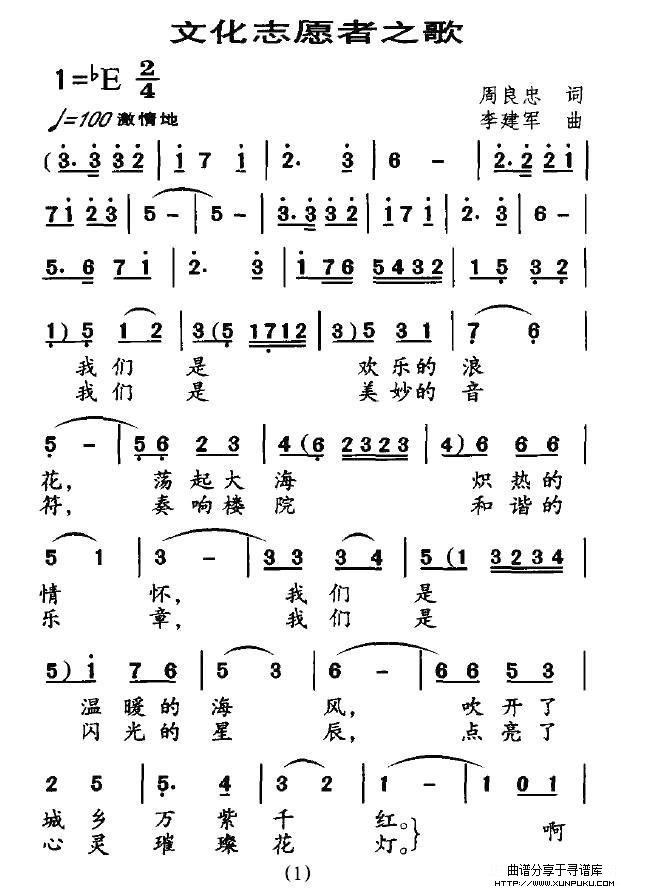 文化志愿者之歌
1=♭E 2/4
周良忠 词
♩=100 激情地
李建军 曲
(3. 3 3 2 | i 7 i | 2. 3 | 6 – | 2. 2 2 i |
7 i 2 3 | 5 – | 5 – | 3. 3 3 2 | i 7 i | 2. 3 | 6 – |
5. 6 7 i | 2. 3 | i 7 6 5 4 3 2 | 1 5 3 2 |
1) 5 1 2 | 3 (5 1 7 1 2 | 3) 5 3 1 | 7 6 |
我 们 是 欢 乐 的 浪
我 们 是 美 妙 的 音
5 – | 5 6 2 3 | 4 (6 2 3 2 3 | 4) 6 6 6 |
花, 荡 起 大 海 炽 热 的
符, 奏 响 楼 院 和 谐 的
5 1 | 3 – | 3 3 3 4 | 5 (1 3 2 3 4 |
情 怀, 我 们 是
乐 章, 我 们 是
5) i 7 6 | 5 3 | 6 – | 6 6 5 3 |
温 暖 的 海 风, 吹 开 了
闪 光 的 星 辰, 点 亮 了
2 5 | 5. 4 | 3 2 | 1 – | 1 0 1 |
城 乡 万 紫 千 红。
心 灵 璀 璨 花 灯。} 啊
(1)
曲谱分享于寻谱库
HTTP://WWW.XUNPUKU.COM